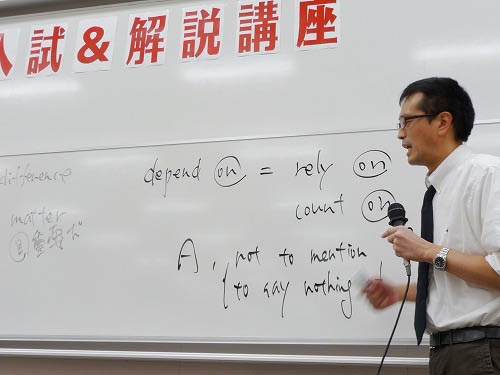 入試&解説講座
difference
matter
depend on = rely on
count on
A, not to mention
to say nothing